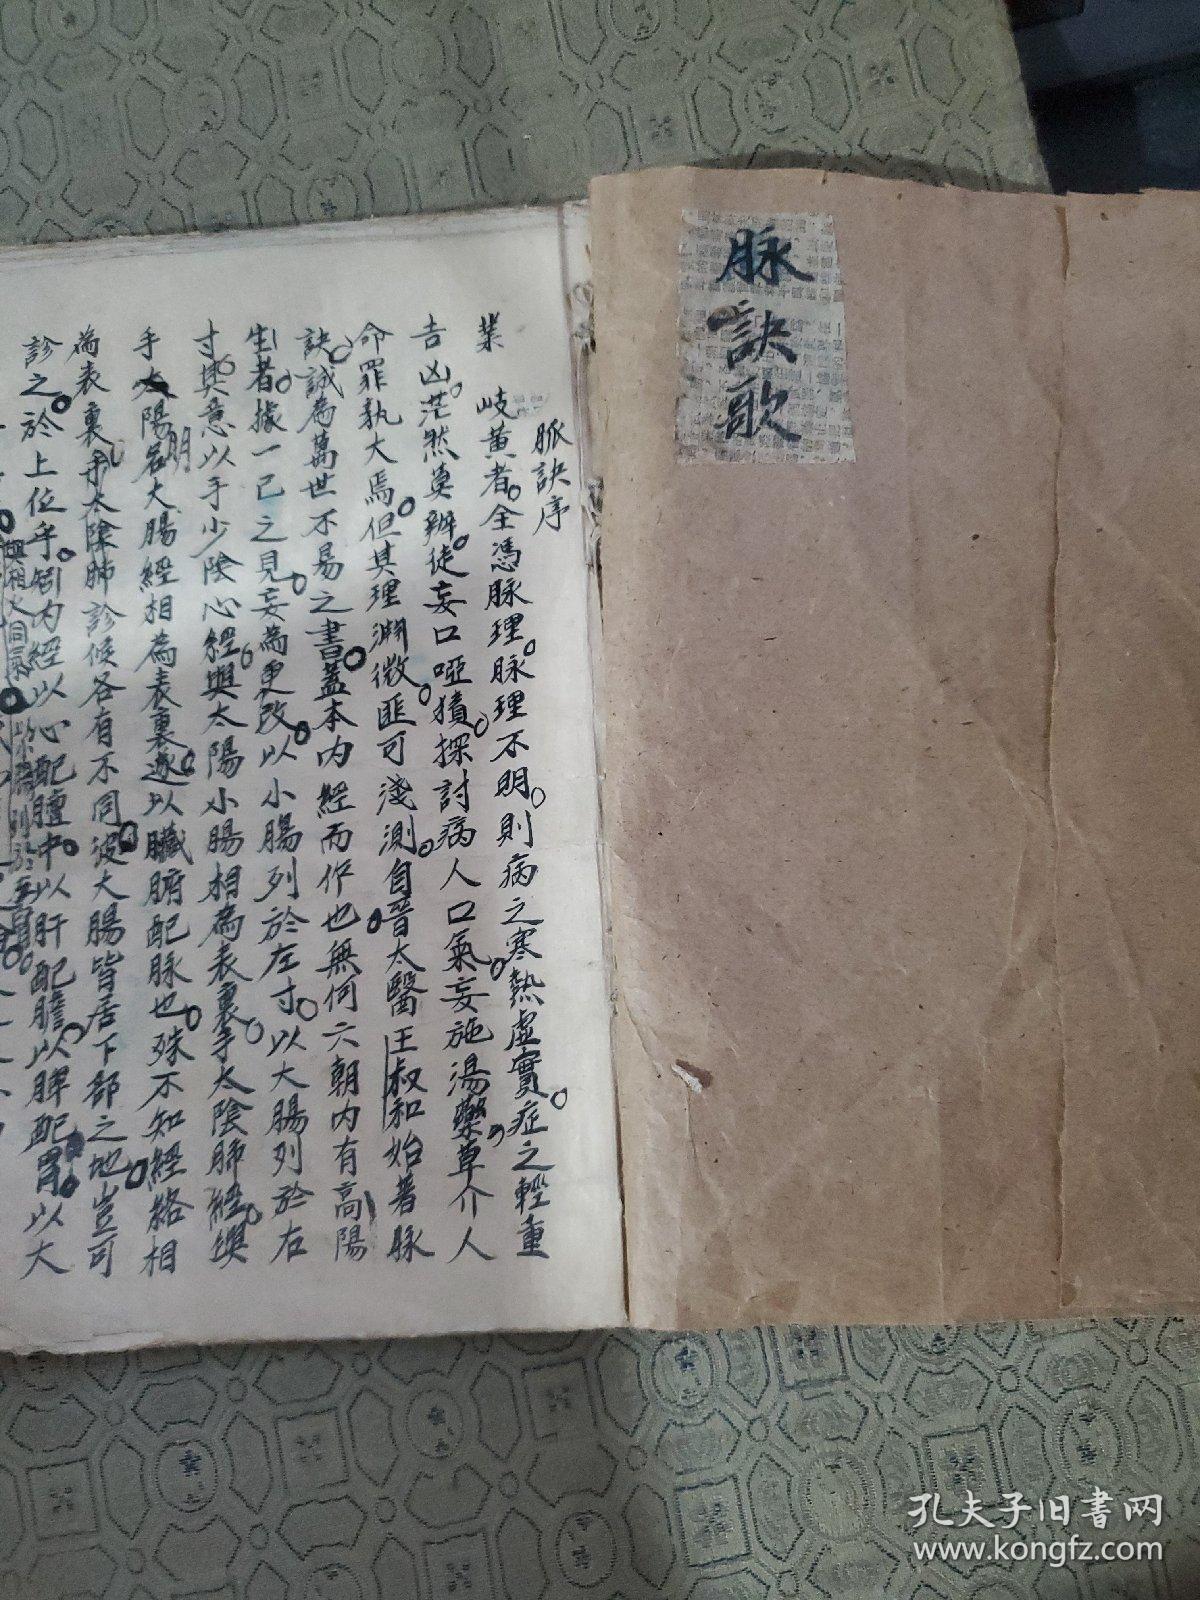 脉訣歌
脈訣序
業岐黄者全憑脉理脉理不明則病之寒熱虚實症之輕重
吉凶茫然莫辨徒妄口啞猜探討病人口氣妄施湯藥草介人
命罪孰大焉但其理淵微匪可淺測自晉太醫王叔和始著脉
訣誠為萬世不易之書蓋本内經而作也無何六朝内有高陽
生者據一己之見妄為更改以小腸列於左寸以大腸列於右
寸其意以手少陰心經與太陽小腸相為表裏手太陰肺經與
手陽明大腸經相為表裏遂以臟腑配脉也殊不知經絡相
為表裏手太陰肺診候各有不同彼大腸皆居下部之地豈可
診之於上位乎矧内經以心配膻中以肝配膽以脾配胃以大
與相火同氣
孔夫子旧书网
www.kongfz.com